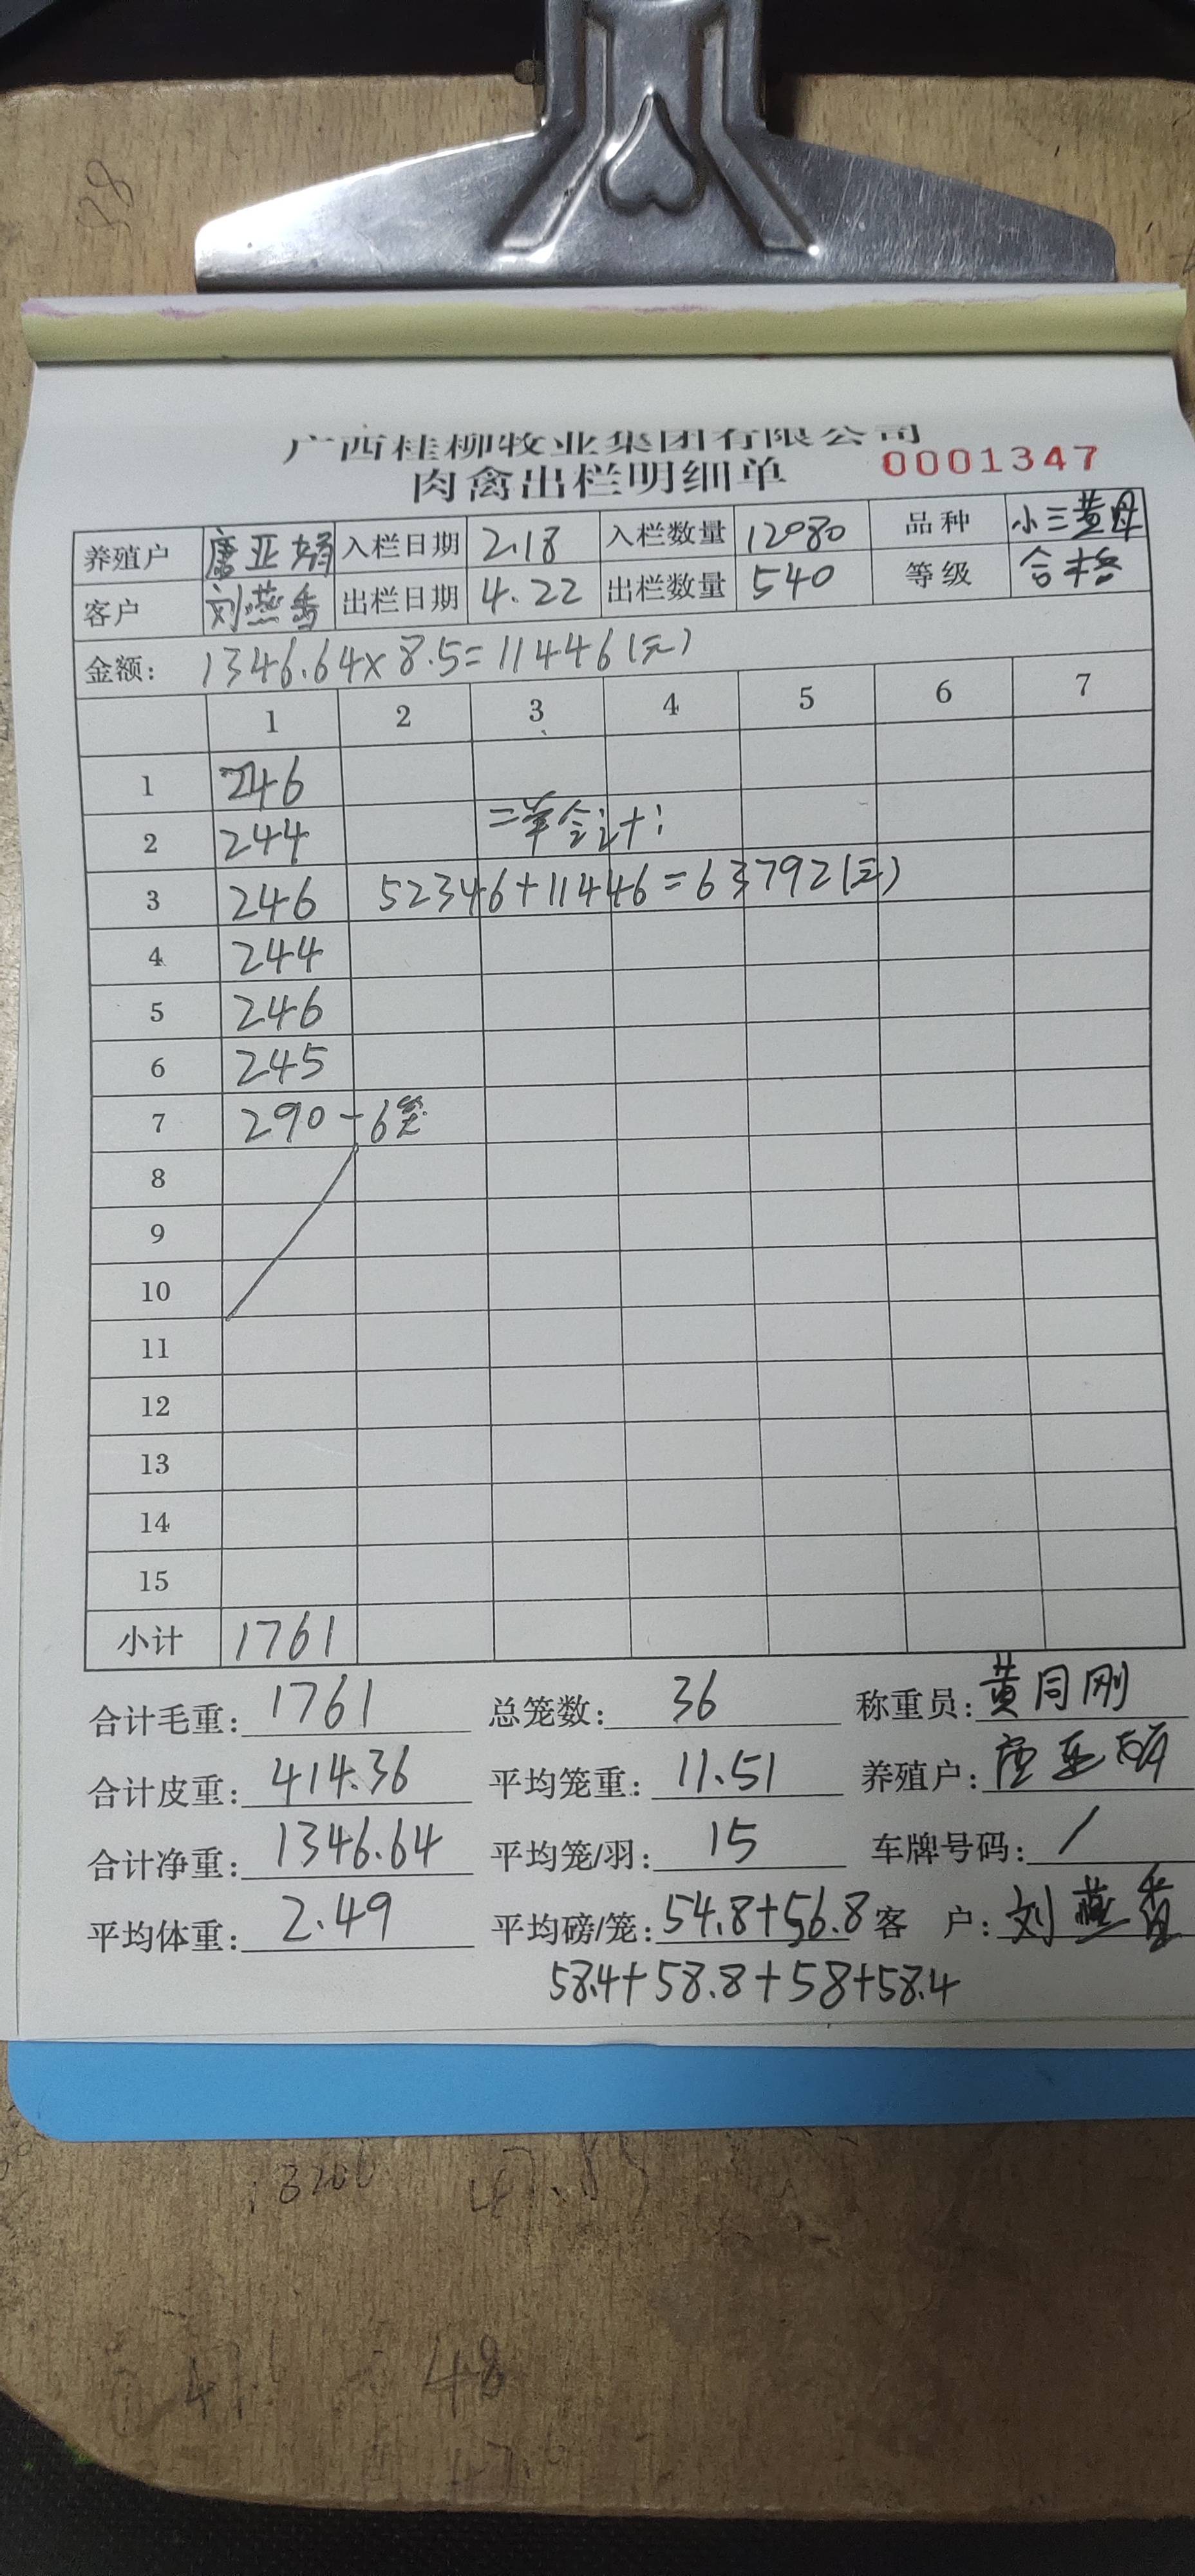 广西桂柳牧业集团有限公司
肉禽出栏明细单 0001347
养殖户 唐亚娟 入栏日期 2.18 入栏数量 12080 品种 小三黄母
客户 刘燕香 出栏日期 4.22 出栏数量 540 等级 合格
金额: 1346.64×8.5=11446(元)
1 2 3 4 5 6 7
1 246
2 244 二单合计:
3 246 52346+11446=63792(元)
4 244
5 246
6 245
7 290-6笼
8
9
10
11
12
13
14
15
小计 1761
合计毛重: 1761 总笼数: 36 称重员: 黄同刚
合计皮重: 414.36 平均笼重: 11.51 养殖户: 唐亚娟
合计净重: 1346.64 平均笼/羽: 15 车牌号码: /
平均体重: 2.49 平均磅/笼: 54.8+56.8 客 户: 刘燕香
58.4+58.8+58+58.4
48